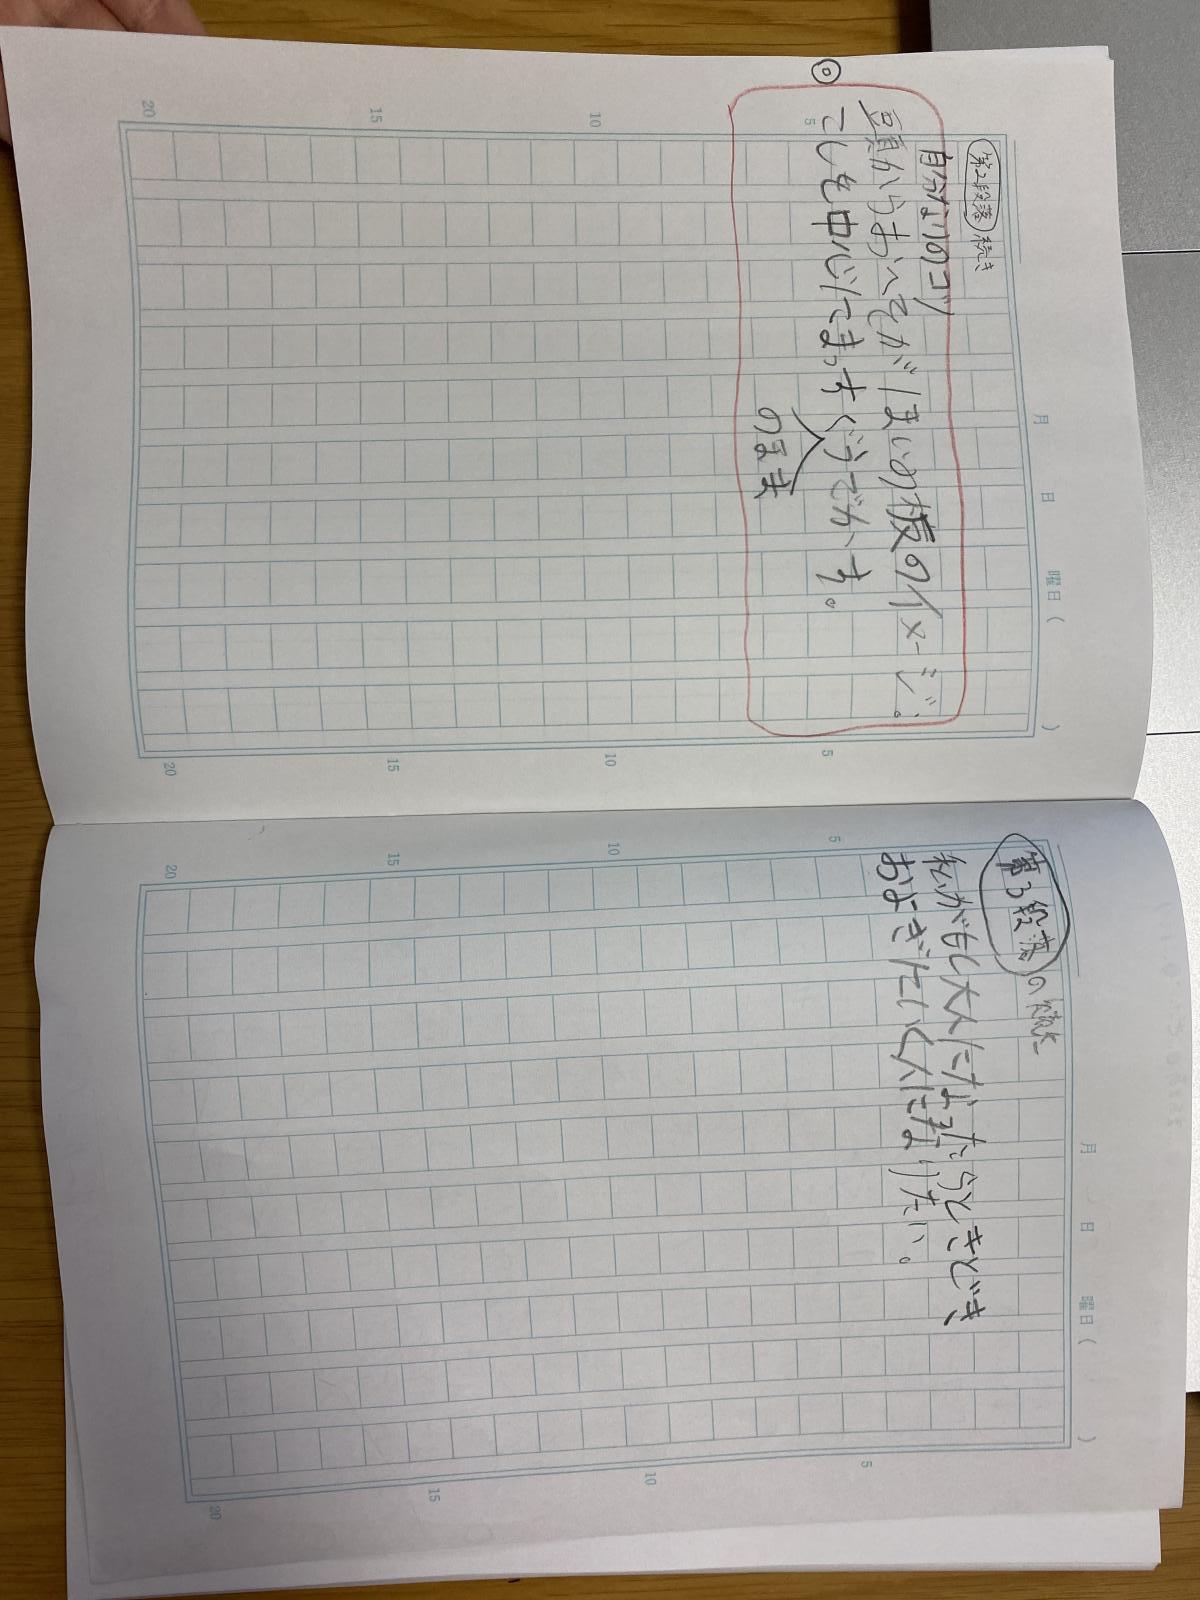 第2段落 続き
自分なりのコツ
頭からおへそが1まいの板のイメージ。
こしを中心にてまっすぐうでかす。
のまま
第3段落の続き
私がもし大人になったらときどき
およぎにいく人になりたい。
月 日 曜日( )
5
10
15
20
5
10
15
20
月 日 曜日( )
5
10
15
20
5
10
15
20